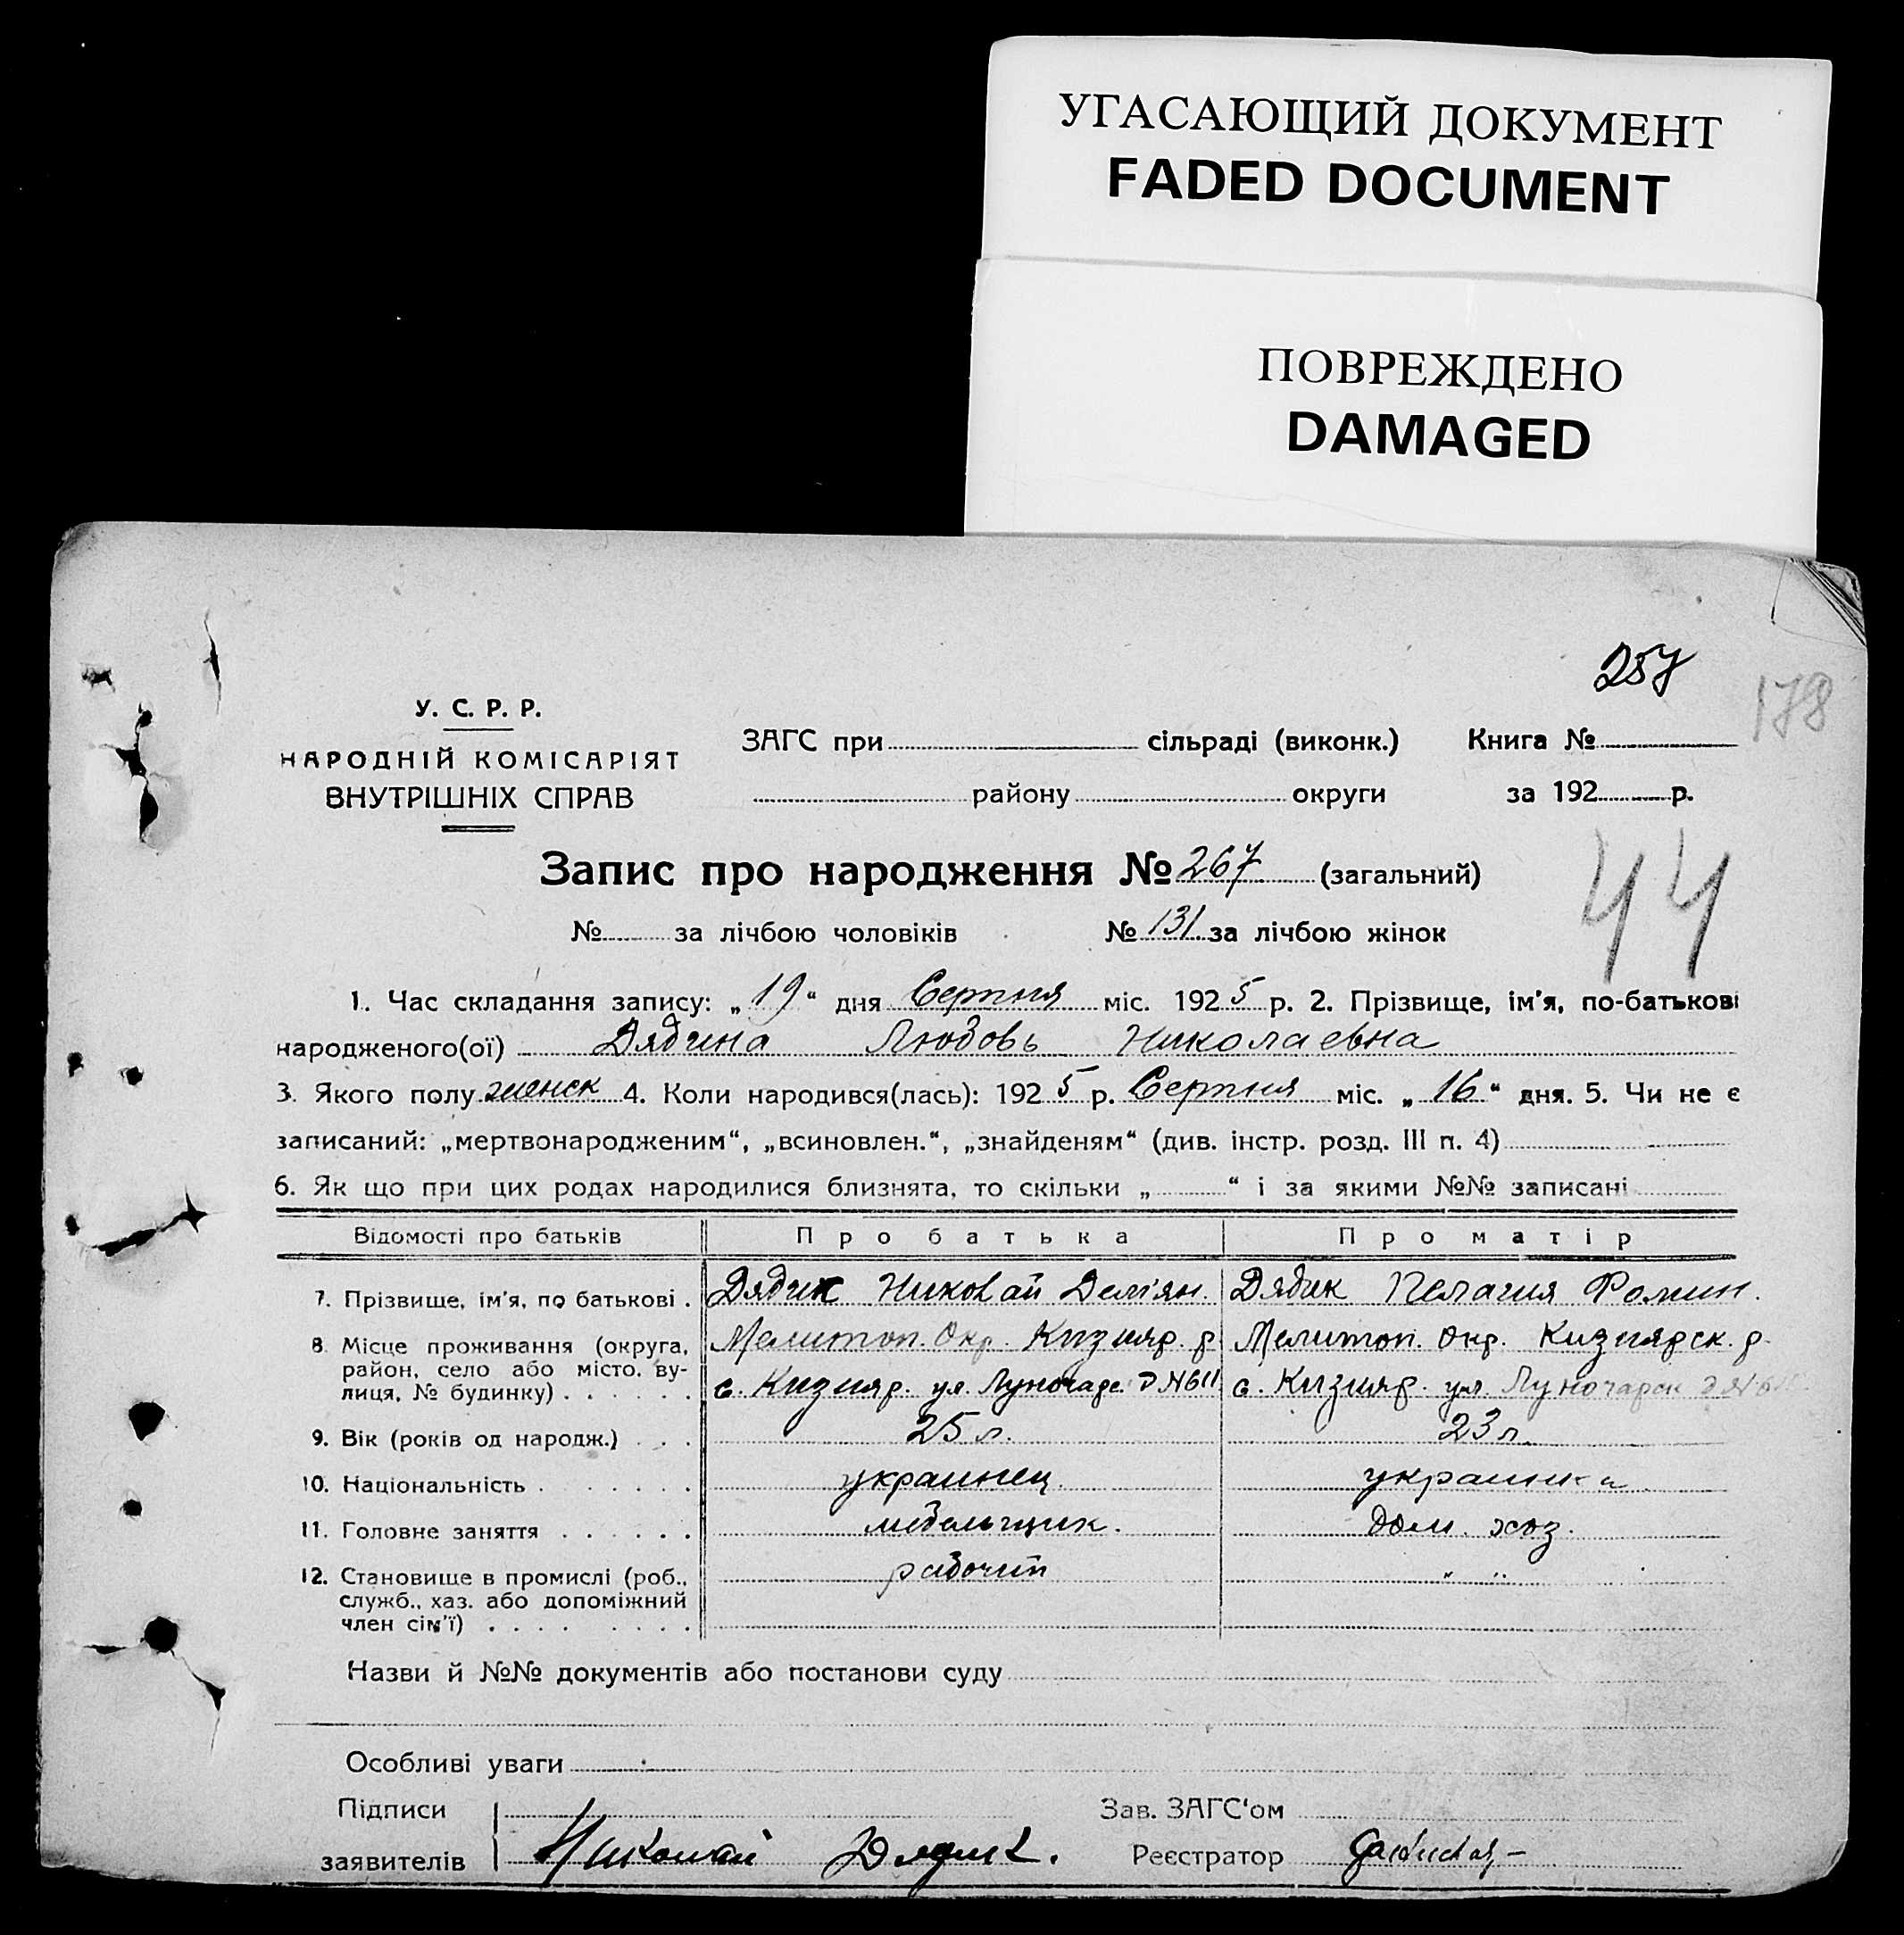 УГАСАЮЩИЙ ДОКУМЕНТ
FADED DOCUMENT
ПОВРЕЖДЕНО
DAMAGED
257
178
У. С. Р. Р.
НАРОДНІЙ КОМІСАРІЯТ
ВНУТРІШНІХ СПРАВ
ЗАГС при сільраді (виконк.) Книга №
району округи за 192 р.
Запис про народження № 267 (загальний)
44
№ за лічбою чоловіків № 131 за лічбою жінок
1. Час складання запису: „19“ дня Серпня міс. 1925 р. 2. Прізвище, ім'я, по-батькові
народженого(ої) Дядина Любовь Николаевна
3. Якого полу женск 4. Коли народився(лась): 1925 р. Серпня міс. „16“ дня. 5. Чи не є
записаний: „мертвонародженим“, „всиновлен.“, „знайденям“ (див. інстр. розд. III п. 4)
6. Як що при цих родах народилися близнята, то скільки „ “ і за якими №№ записані
Відомості про батьків Про батька Про матір
7. Прізвище, ім'я, по батькові . Дядик Николай Демян. Дядик Пелагия Фомин.
8. Місце проживання (округа, Мелитоп. Окр. Кизияр. р. Мелитоп. Окр. Кизиярск. р.
район, село або місто, ву-
лиця, № будинку) . . . . . . с. Кизияр. ул. Луначарс. д №611 с. Кизияр. ул. Луначарск д №
9. Вік (років од народж.) . . . 25 л. 23 л.
10. Національність . . . . . . . украинец украинка
11. Головне заняття . . . . . . мебельщик. дом. хоз.
12. Становище в промислі (роб., рабочий " "
служб., хаз. або допоміжний
член сім'ї) . . . . . . . .
Назви й №№ документів або постанови суду
Особливі уваги
Підписи Зав. ЗАГС'ом
заявителів Николай Дядик. Реєстратор